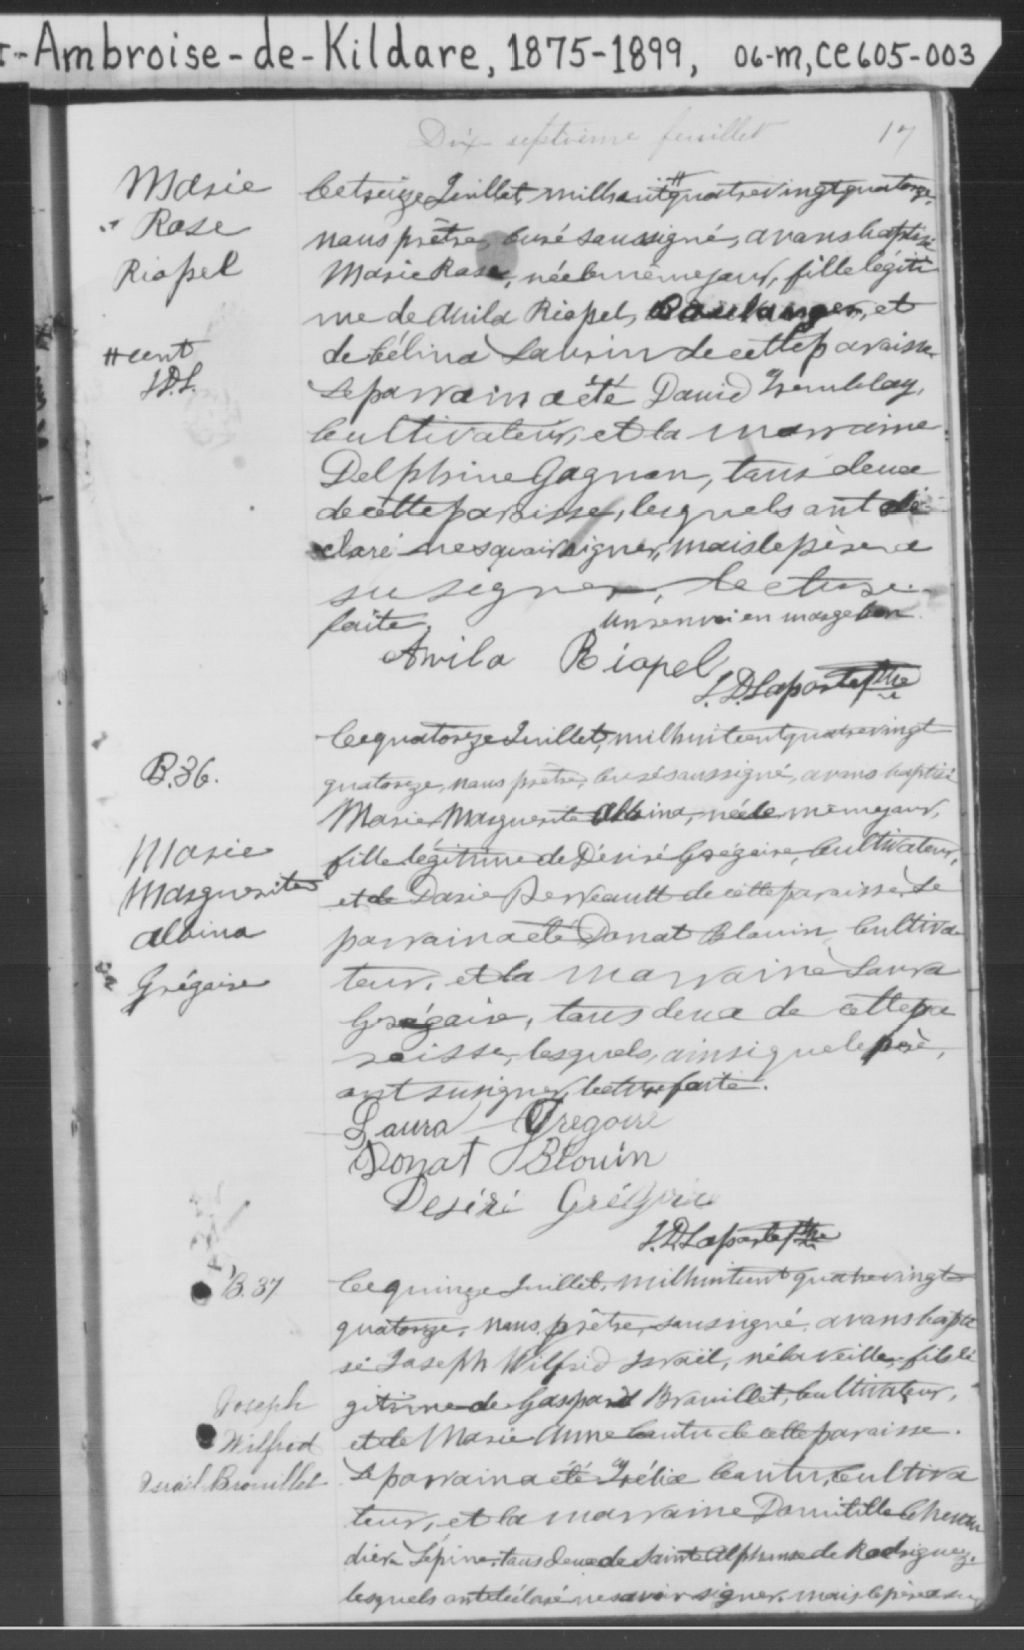 -Ambroise-de-Kildare, 1875-1899, 06-M, CE605-003
Dix septième feuillet 17
Marie
Rose
Riopel
# cent
Le seize Juillet mil huit # quatre vingt quatorze,
nous prêtre, curé soussigné, avons baptisé
Marie Rose, née le même jour, fille légiti
me de Avila Riopel, Boulanger, et
de Célina Laurin de cette paroisse
Le parrain a été David Tremblay,
Cultivateur, et la marraine
Delphine Gagnon, tous deux
de cette paroisse, lesquels ont dé
claré ne savoir signer, mais le père a
su signer, lecture
faite. Un renvoi en marge bon
Avila Riopel
J.D. Laporte Ptre
B.36.
Marie
Marguerite
Albina
Grégoire
Le quatorze Juillet, mil huit cent quatre vingt
quatorze, nous prêtre, curé soussigné, avons baptisé
Marie Marguerite Albina, née le même jour,
fille légitime de Désiré Grégoire, Cultivateur,
et de Perreault de cette paroisse. Le
parrain a été Donat Blouin Cultiva
teur, et la marraine Laura
Grégoire, tous deux de cette pa
roisse, lesquels, ainsi que le père,
ont su signer, lecture faite.
Laura Gregoire
Donat Blouin
Desiré Grégoire
J.D. Laporte Ptre
B.37
Joseph
Wilfrid
Israël Brouillet
Le quinze Juillet, mil huit cent quatre vingt
quatorze, nous, prêtre, soussigné, avons bapti
sé Joseph Wilfrid Israël, né la veille, fils lé
gitime de Gaspard Brouillet, Cultivateur,
et de Marie Anne Cantu de cette paroisse.
Le parrain a été Cantu, Cultiva
teur, et la marraine Domitille Chevau
dier Lépine, tous deux de Saint Alphonse de Rodriguez.
lesquels ont déclaré ne savoir signer, mais le père a su